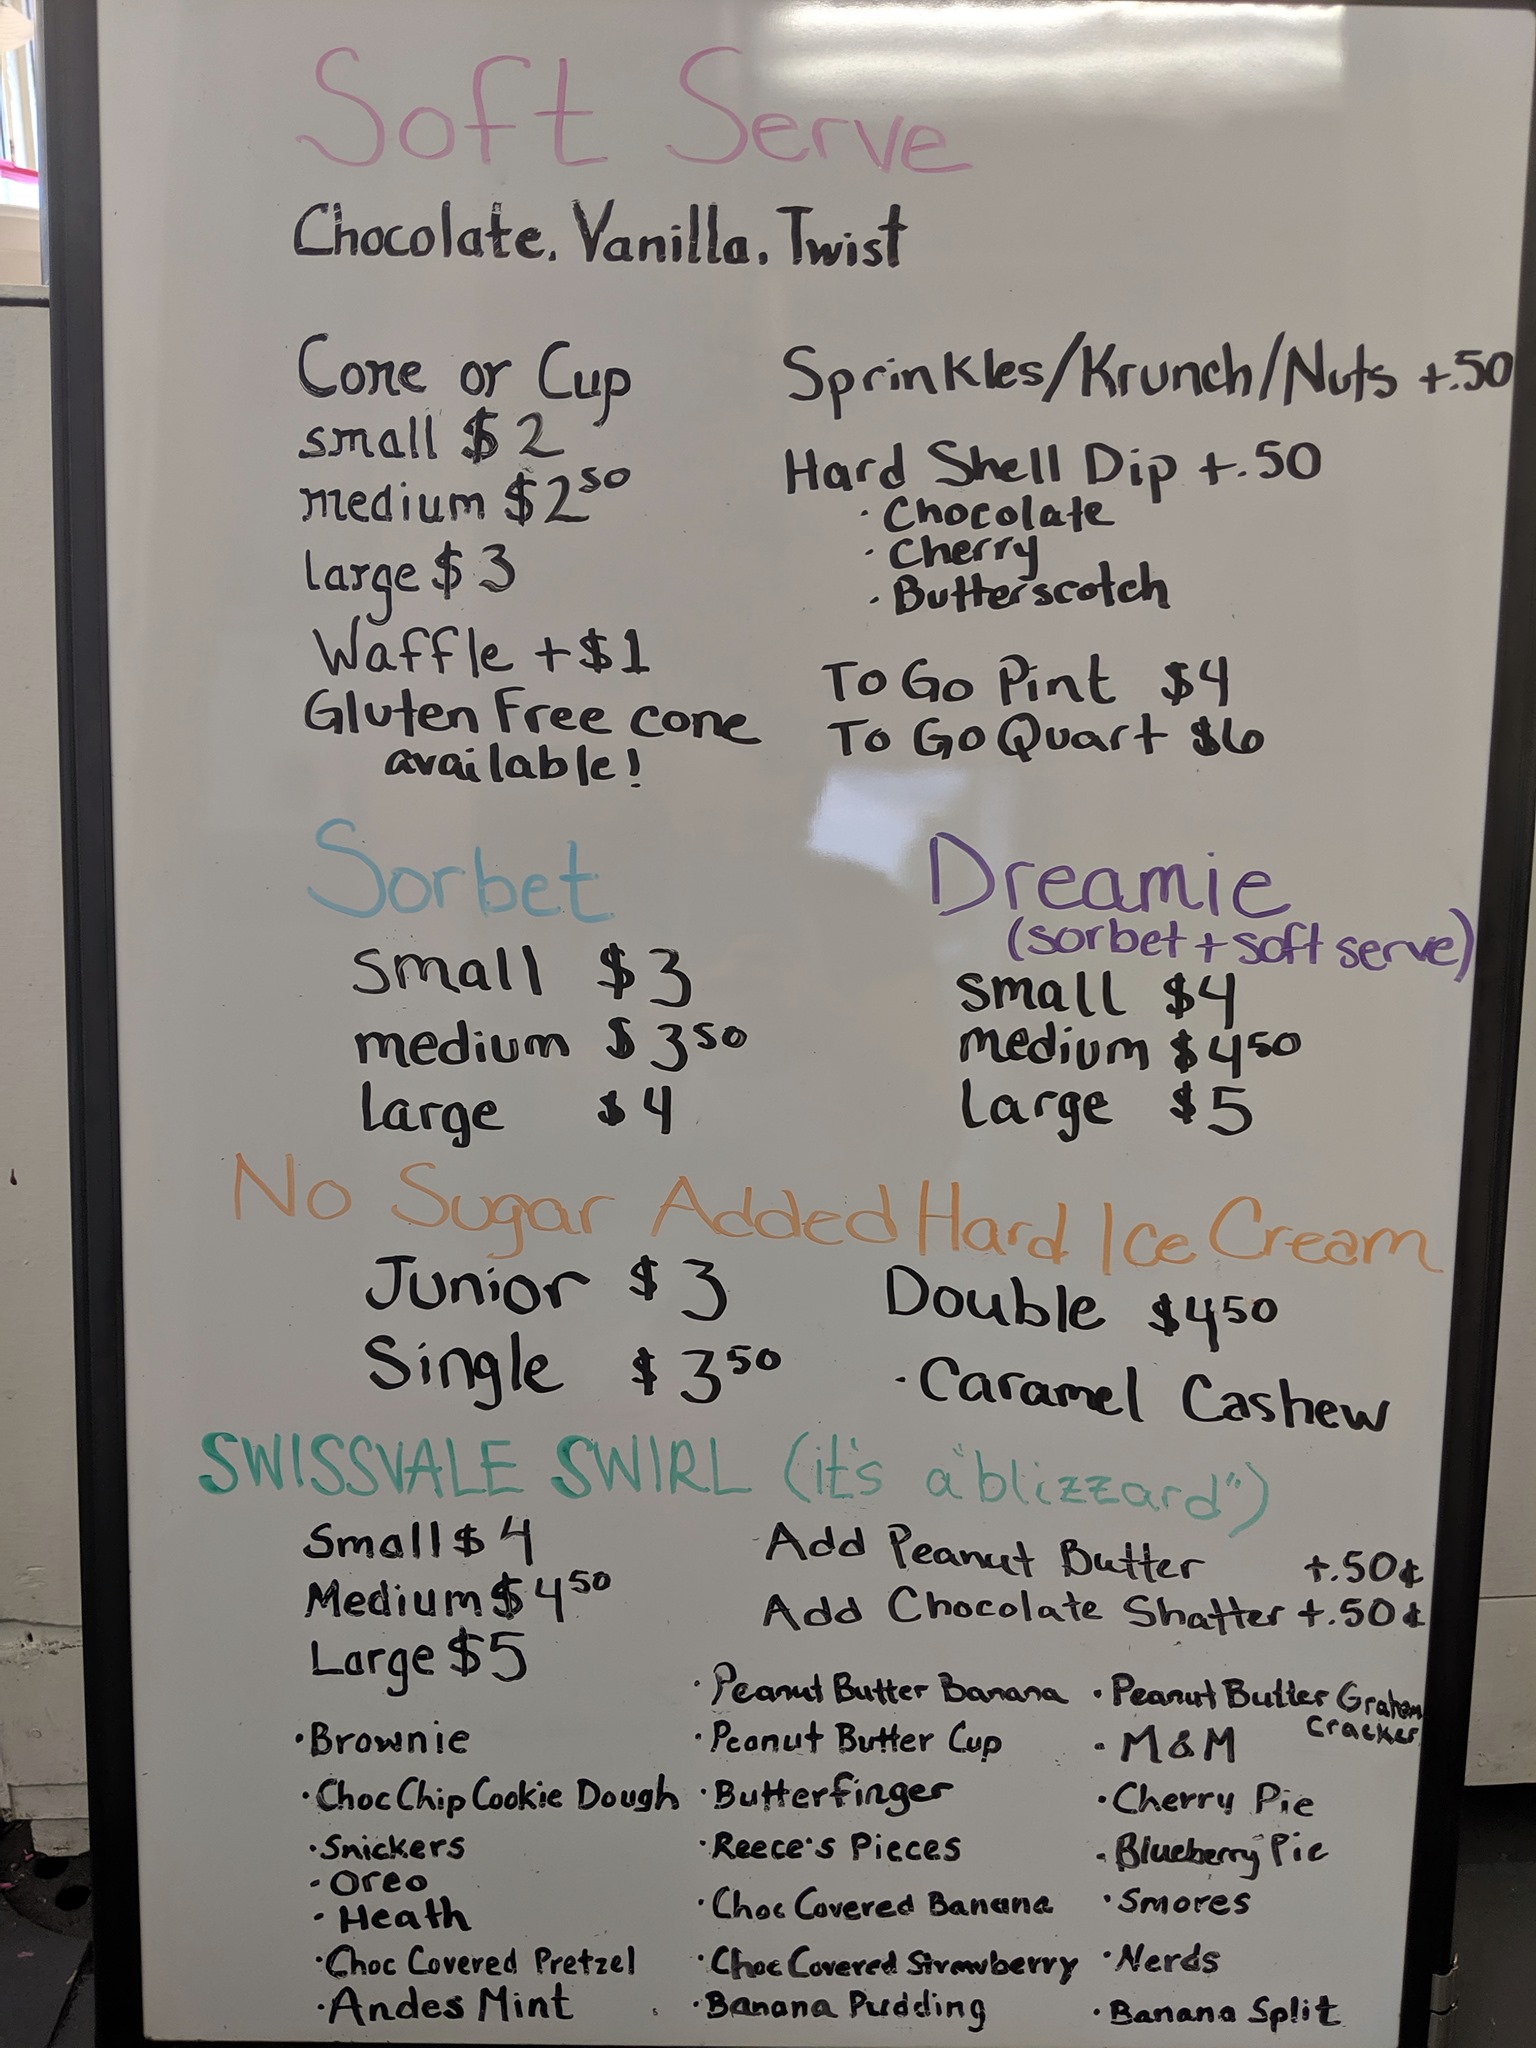 Soft Serve
Chocolate, Vanilla, Twist
Cone or Cup
small $2
medium $2 50
large $3
Waffle + $1
Gluten Free cone
available!
Sprinkles/Krunch/Nuts +.50
Hard Shell Dip +.50
· Chocolate
· Cherry
· Butterscotch
To Go Pint $4
To Go Quart $6
Sorbet
small $3
medium $3 50
large $4
Dreamie
(sorbet + soft serve)
small $4
medium $4 50
large $5
No Sugar Added Hard Ice Cream
Junior $3
Single $3 50
Double $4 50
· Caramel Cashew
SWISSVALE SWIRL (it's a "blizzard")
Small $4
Medium $4 50
Large $5
Add Peanut Butter +.50¢
Add Chocolate Shatter +.50¢
· Brownie
· Choc Chip Cookie Dough
· Snickers
· Oreo
· Heath
· Choc Covered Pretzel
· Andes Mint
· Peanut Butter Banana
· Peanut Butter Cup
· Butterfinger
· Reece's Pieces
· Choc Covered Banana
· Choc Covered Strawberry
· Banana Pudding
· Peanut Butter Graham
Cracker
· M&M
· Cherry Pie
· Blueberry Pie
· Smores
· Nerds
· Banana Split